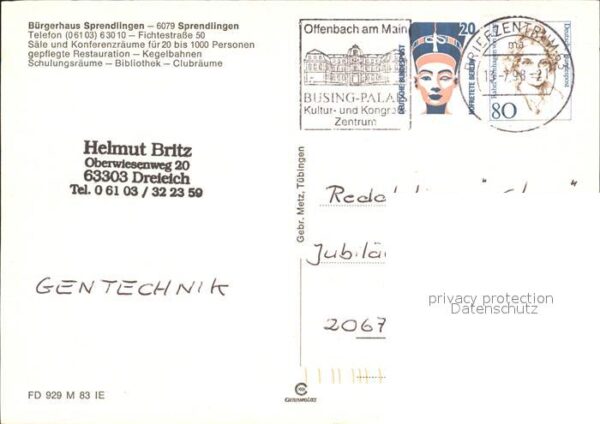 Bürgerhaus Sprendlingen – 6079 Sprendlingen
Telefon (06103) 63010 – Fichtestraße 50
Säle und Konferenzräume für 20 bis 1000 Personen
gepflegte Restauration – Kegelbahnen
Schulungsräume – Bibliothek – Clubräume
Helmut Britz
Oberwiesenweg 20
63303 Dreieich
Tel. 0 61 03 / 32 23 59
GENTECHNIK
FD 929 M 83 IE
Gebr. Metz, Tübingen
Offenbach am Main
BÜSING-PALAIS
Kultur- und Kongreß
Zentrum
DEUTSCHE BUNDESPOST
20
NOFRETETE BERLIN
BRIEFZENTRUM 63
Deutsche Bundespost
80
Jubilä
2067
privacy protection
Datenschutz